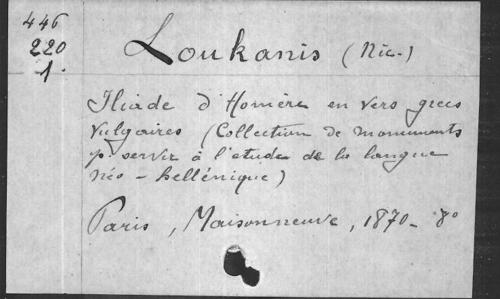 446
220
1.
Loukanis (Nic.)
Iliade d'Homère en vers grecs
vulgaires (Collection de monuments
p. servir à l'etude de la langue
néo-hellénique)
Paris, Maisonneuve, 1870 - 8°